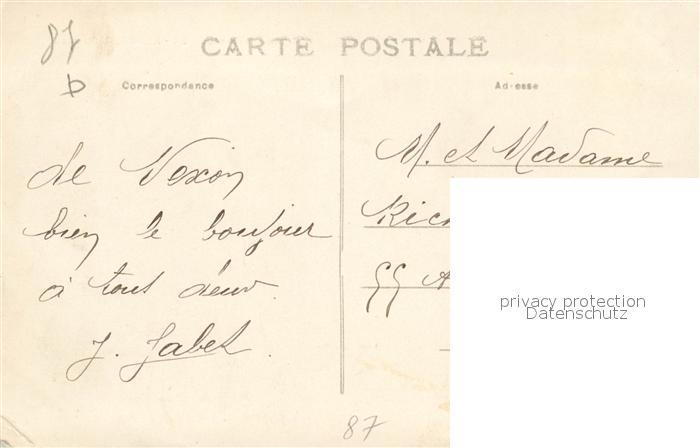 87
CARTE POSTALE
Correspondance
Adresse
de Nexon
bien le bonjour
à tous deux.
J. Gabet.
M. et Madame
Rich
55 A
privacy protection
Datenschutz
87